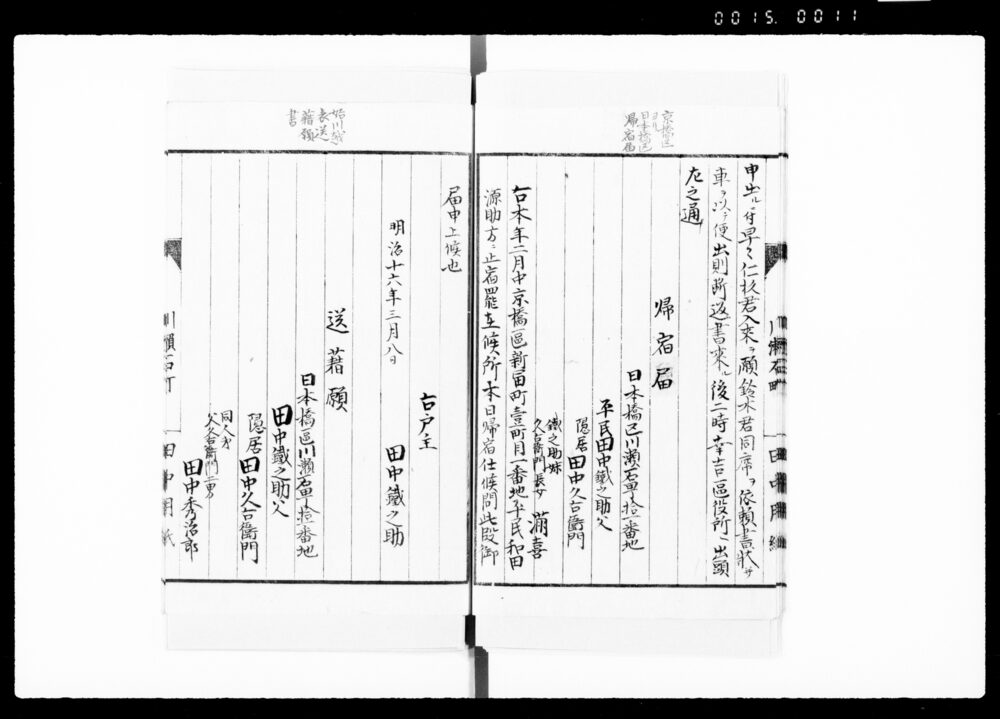 0015. 0011
京橋区
ヨリ
日本橋区
帰宿届
申出ル ニ付早々仁杉君入来ヲ願鈴木君同席ヲ依頼書状サ
車ヲ以テ使出則断返書来ル後二時幸吉區役所ヘ出頭
左之通
帰宿届
日本橋區川瀬石町十拾番地
平民田中鐵之助父
隠居 田中久右衛門
鐵之助妹
久右衛門長女 満喜
右本年二月中京橋區新富町壹町目一番地平民和田
源助方ニ止宿罷在候所本日帰宿仕候間此段御
届申上候也
右戸主
田中鐵之助
明治十六年三月八日
表送
籍願
書
送籍願
日本橋區川瀬石町十拾番地
田中鐵之助父
隠居 田中久右衛門
同人弟
父久右衛門二男
田中秀治郎
川瀬石町
田中用紙